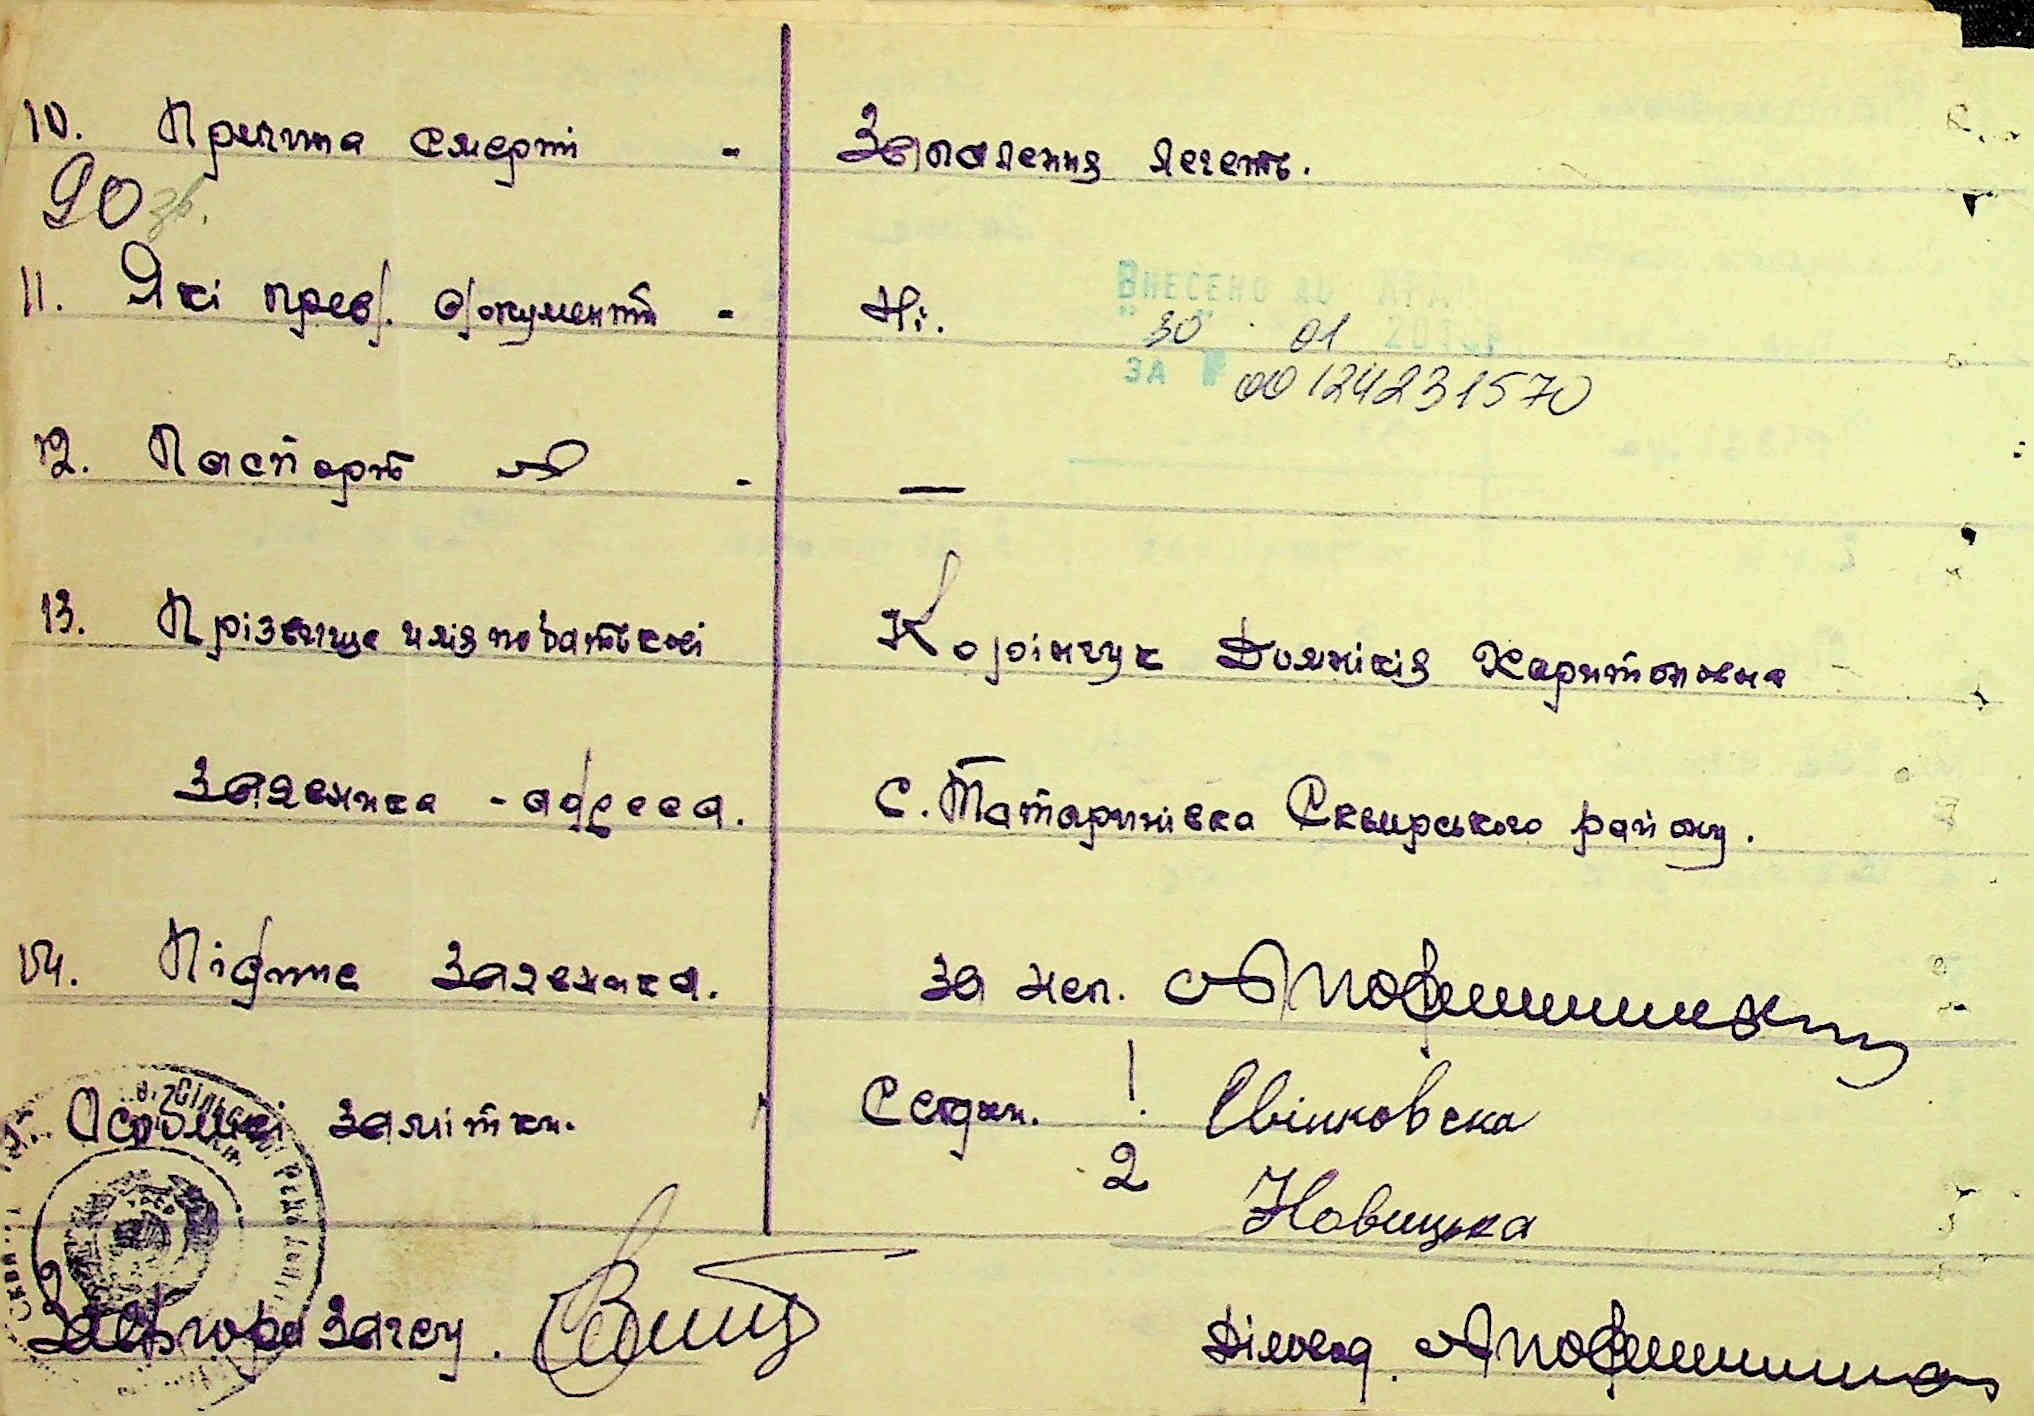 10. Причина смерті - Запалення легень.
90 зв.
11. Які пред. документи - Ні.
Внесено до
" 30 " 01 201
за № 00124231570
12. Паспорт - —
13. Прізвище имія по батькові Корінчук Домнікія Харитоновна
Заявника - адреса. С. Татаринівка Сквирського району.
14. Підпис Заявника. За неп.
Особливі замітки. Свідки. 1. Свінковська
2 Новицька
Зав. бюра Загсу. Діловод.